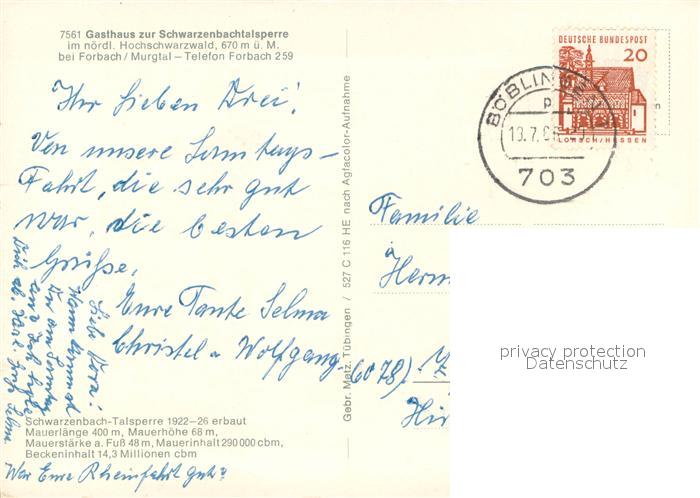 7561 Gasthaus zur Schwarzenbachtalsperre
im nördl. Hochschwarzwald, 670 m ü. M.
bei Forbach / Murgtal – Telefon Forbach 259
Ihr lieben Drei!
Von unsere Sonntags-
Fahrt, die sehr gut
war, die besten
Grüße,
Eure Tante Selma
Christel u Wolfgang.
Liebe Nora!
Wann kommst
Du am Sonntag
und ich hole
Dich ab. Herzl. Gruß Selma
Schwarzenbach-Talsperre 1922–26 erbaut
Mauerlänge 400 m, Mauerhöhe 68 m,
Mauerstärke a. Fuß 48 m, Mauerinhalt 290 000 cbm,
Beckeninhalt 14,3 Millionen cbm
War Eure Rheinfahrt gut?
Gebr. Metz, Tübingen / 527 C 116 HE nach Agfacolor-Aufnahme
DEUTSCHE BUNDESPOST
20
LORSCH/HESSEN
BÖBLINGEN
p
13.7.
703
Familie
Herm
6078)
Hir
privacy protection
Datenschutz